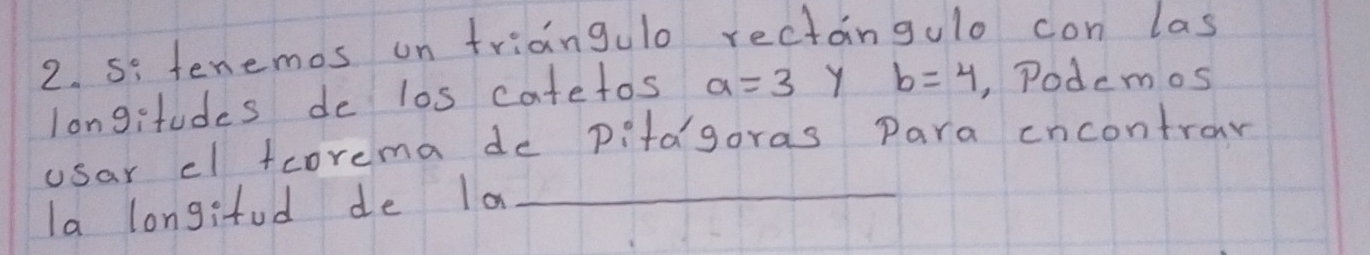 2. Si tenemos un triángulo rectángulo con las
longitudes de los catetos a=3 y b=4, Podemos
usar el teorema de Pitágoras Para encontrar
la longitud de la ___________